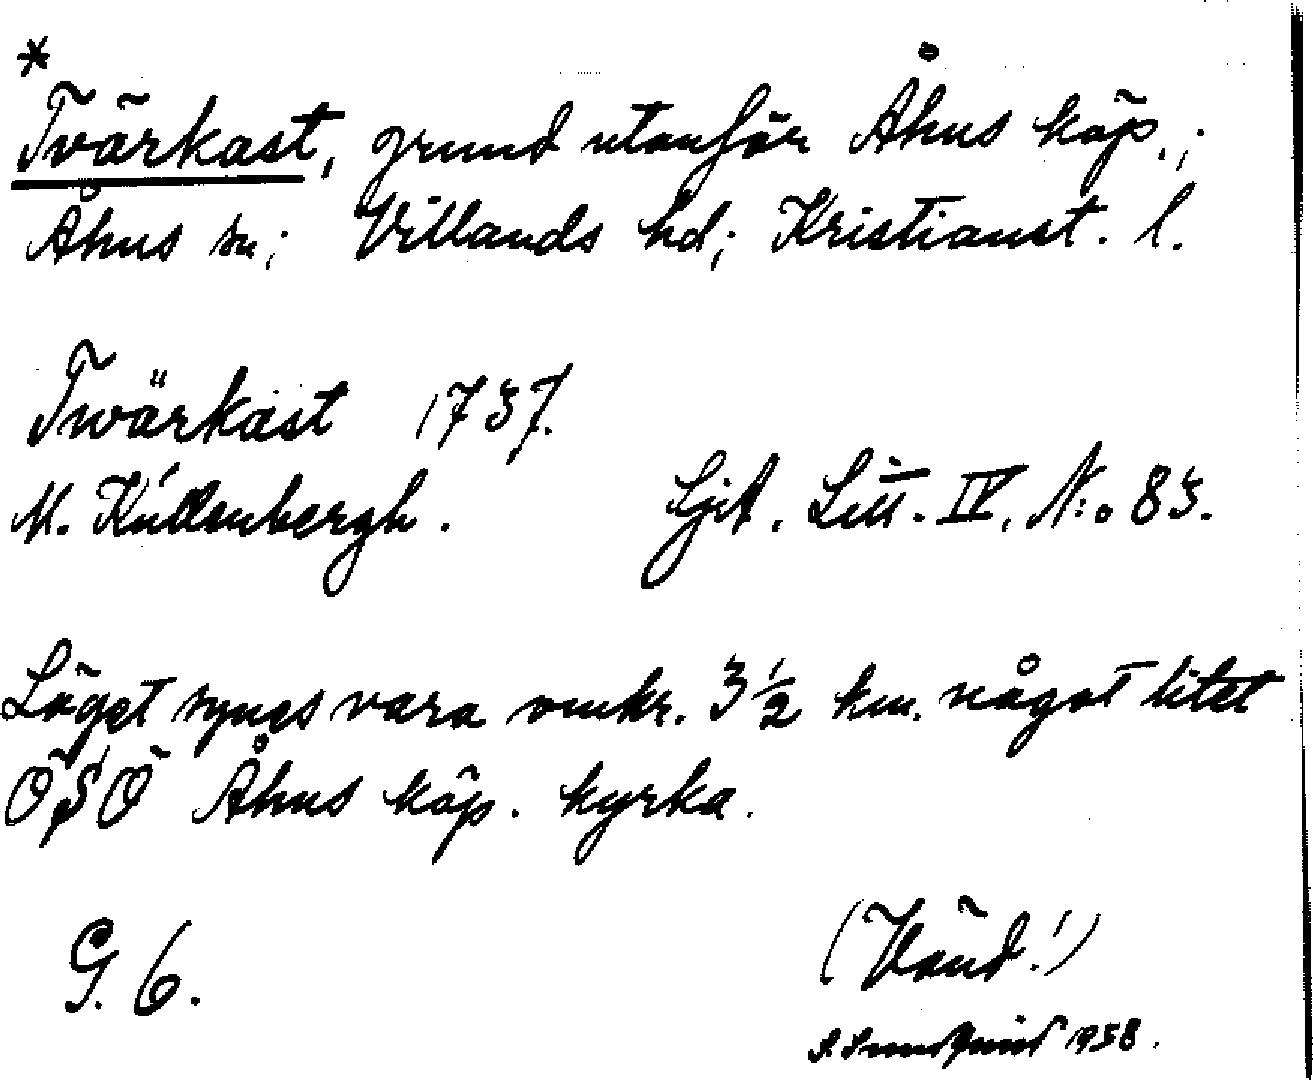 *
Tvärkast, grund utanför Åhus köp.;
Åhus sn; Villands hd; Kristianst. l.
Twärkast 1737.
M. Kullenbergh. Sjöt. Litt. IV, N:o 83.
Läget synes vara omkr. 3 1/2 km. något litet
ÖSÖ Åhus köp. kyrka.
G. 6.
(Vänd!)
1958.